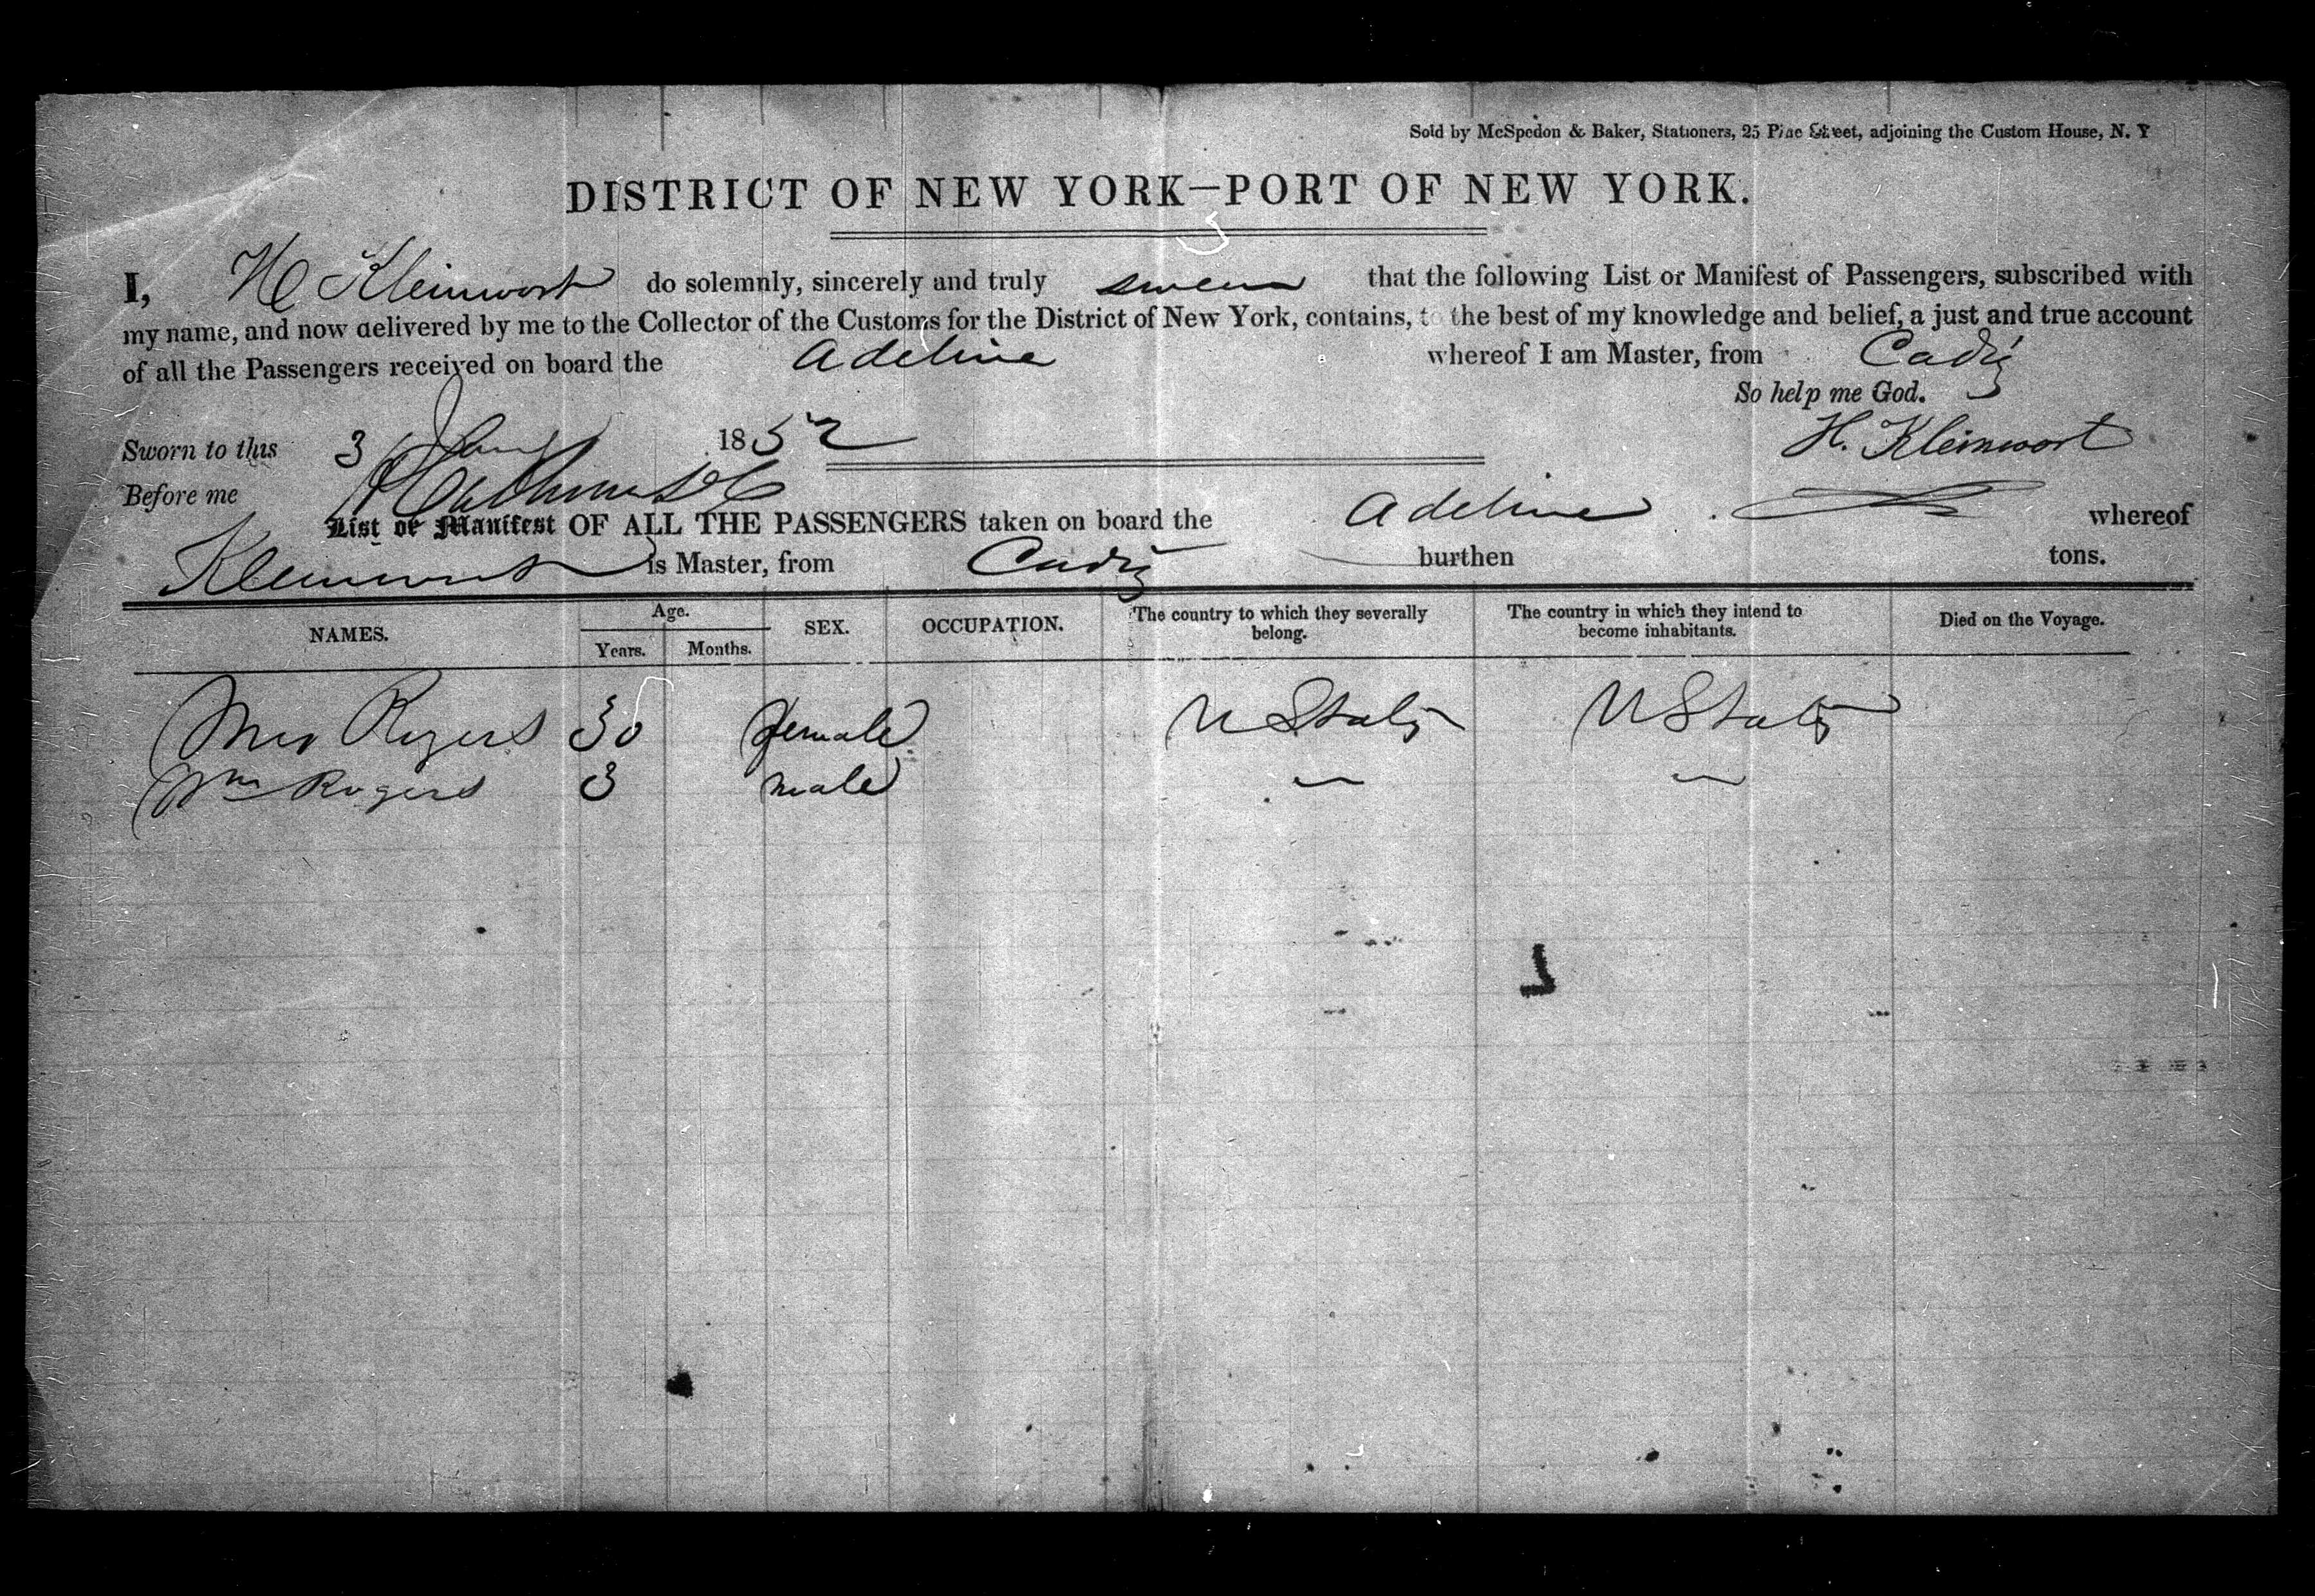 Sold by McSpedon & Baker, Stationers, 25 Pine Street, adjoining the Custom House, N. Y
DISTRICT OF NEW YORK—PORT OF NEW YORK.
I, H Kleinwort do solemnly, sincerely and truly swear that the following List or Manifest of Passengers, subscribed with
my name, and now delivered by me to the Collector of the Customs for the District of New York, contains, to the best of my knowledge and belief, a just and true account
of all the Passengers received on board the Adeline whereof I am Master, from Cadiz
So help me God.
Sworn to this 3 Jany 1852 H. Kleinwort
Before me
List or Manifest OF ALL THE PASSENGERS taken on board the Adeline whereof
Kleinwort is Master, from Cadiz burthen tons.
NAMES. Age. Years. Months. SEX. OCCUPATION. The country to which they severally belong. The country in which they intend to become inhabitants. Died on the Voyage.
Mrs Rogers 30 female U States U States
Wm Rogers 3 male — —